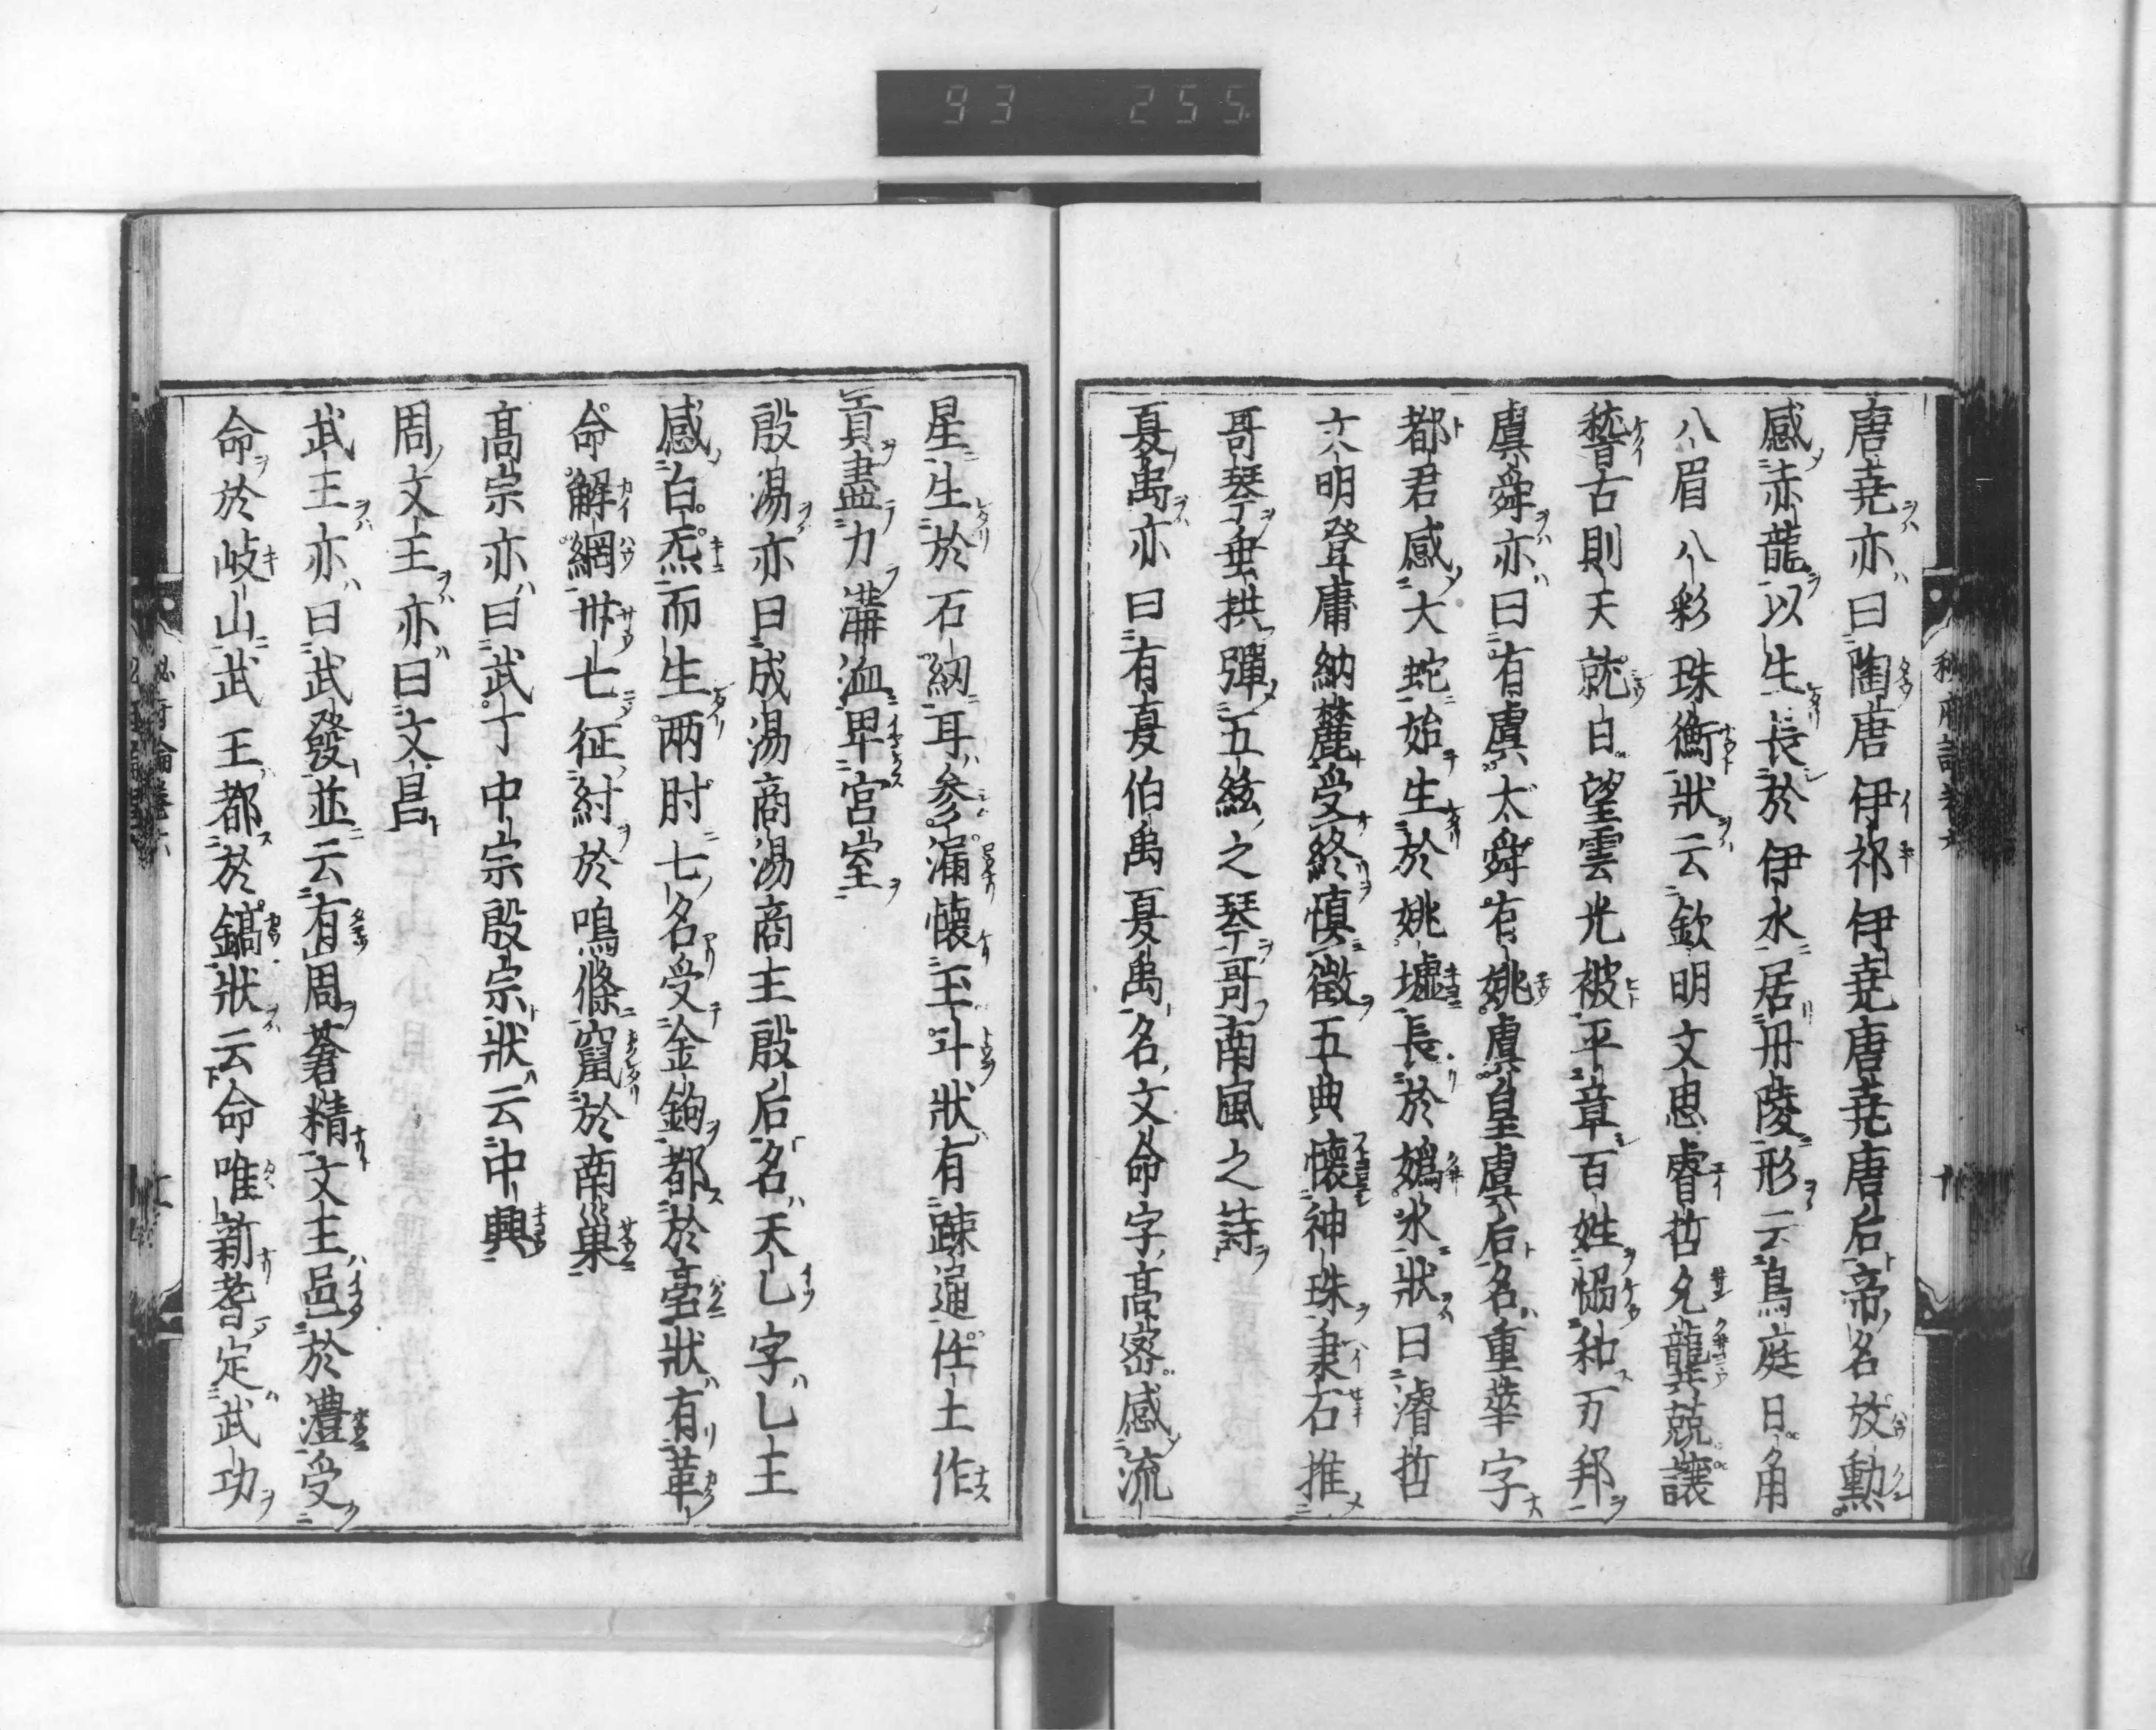 93 255
唐堯亦曰陶唐伊祁伊堯唐堯唐后帝名放勳
感赤龍以生長於伊水居丹陵形云鳥庭日角
八眉八彩珠衡狀云欽明文思睿哲允龔兢讓
稽古則天就日望雲光被平章百姓恊和万邦
虞舜亦曰有虞大舜有姚虞皇虞后名重華字
都君感大蛇始生於姚墟長於媯水狀曰濬哲
文明登庸納麓受終慎徽五典懐神珠秉石推
哥琴垂拱彈五絃之琴哥南風之詩
夏禹亦曰有夏伯禹夏禹名文命字高密感流
星生於石紉耳參漏懐玉斗狀有踈通任土作
貢盡力溝洫卑宮室
殷湯亦曰成湯商湯商主殷后名天乙字乙王
感白炁而生兩肘七名受金鉤都於亳狀有革
命解網卅七征紂於鳴條竄於南巢
髙宗亦曰武丁中宗殷宗狀云中興
周文王亦曰文昌
武王亦曰武發並云有周蒼精文主邑於澧受
命於岐山武王都於鎬狀云命唯新耆定武功
秘府論卷六
十